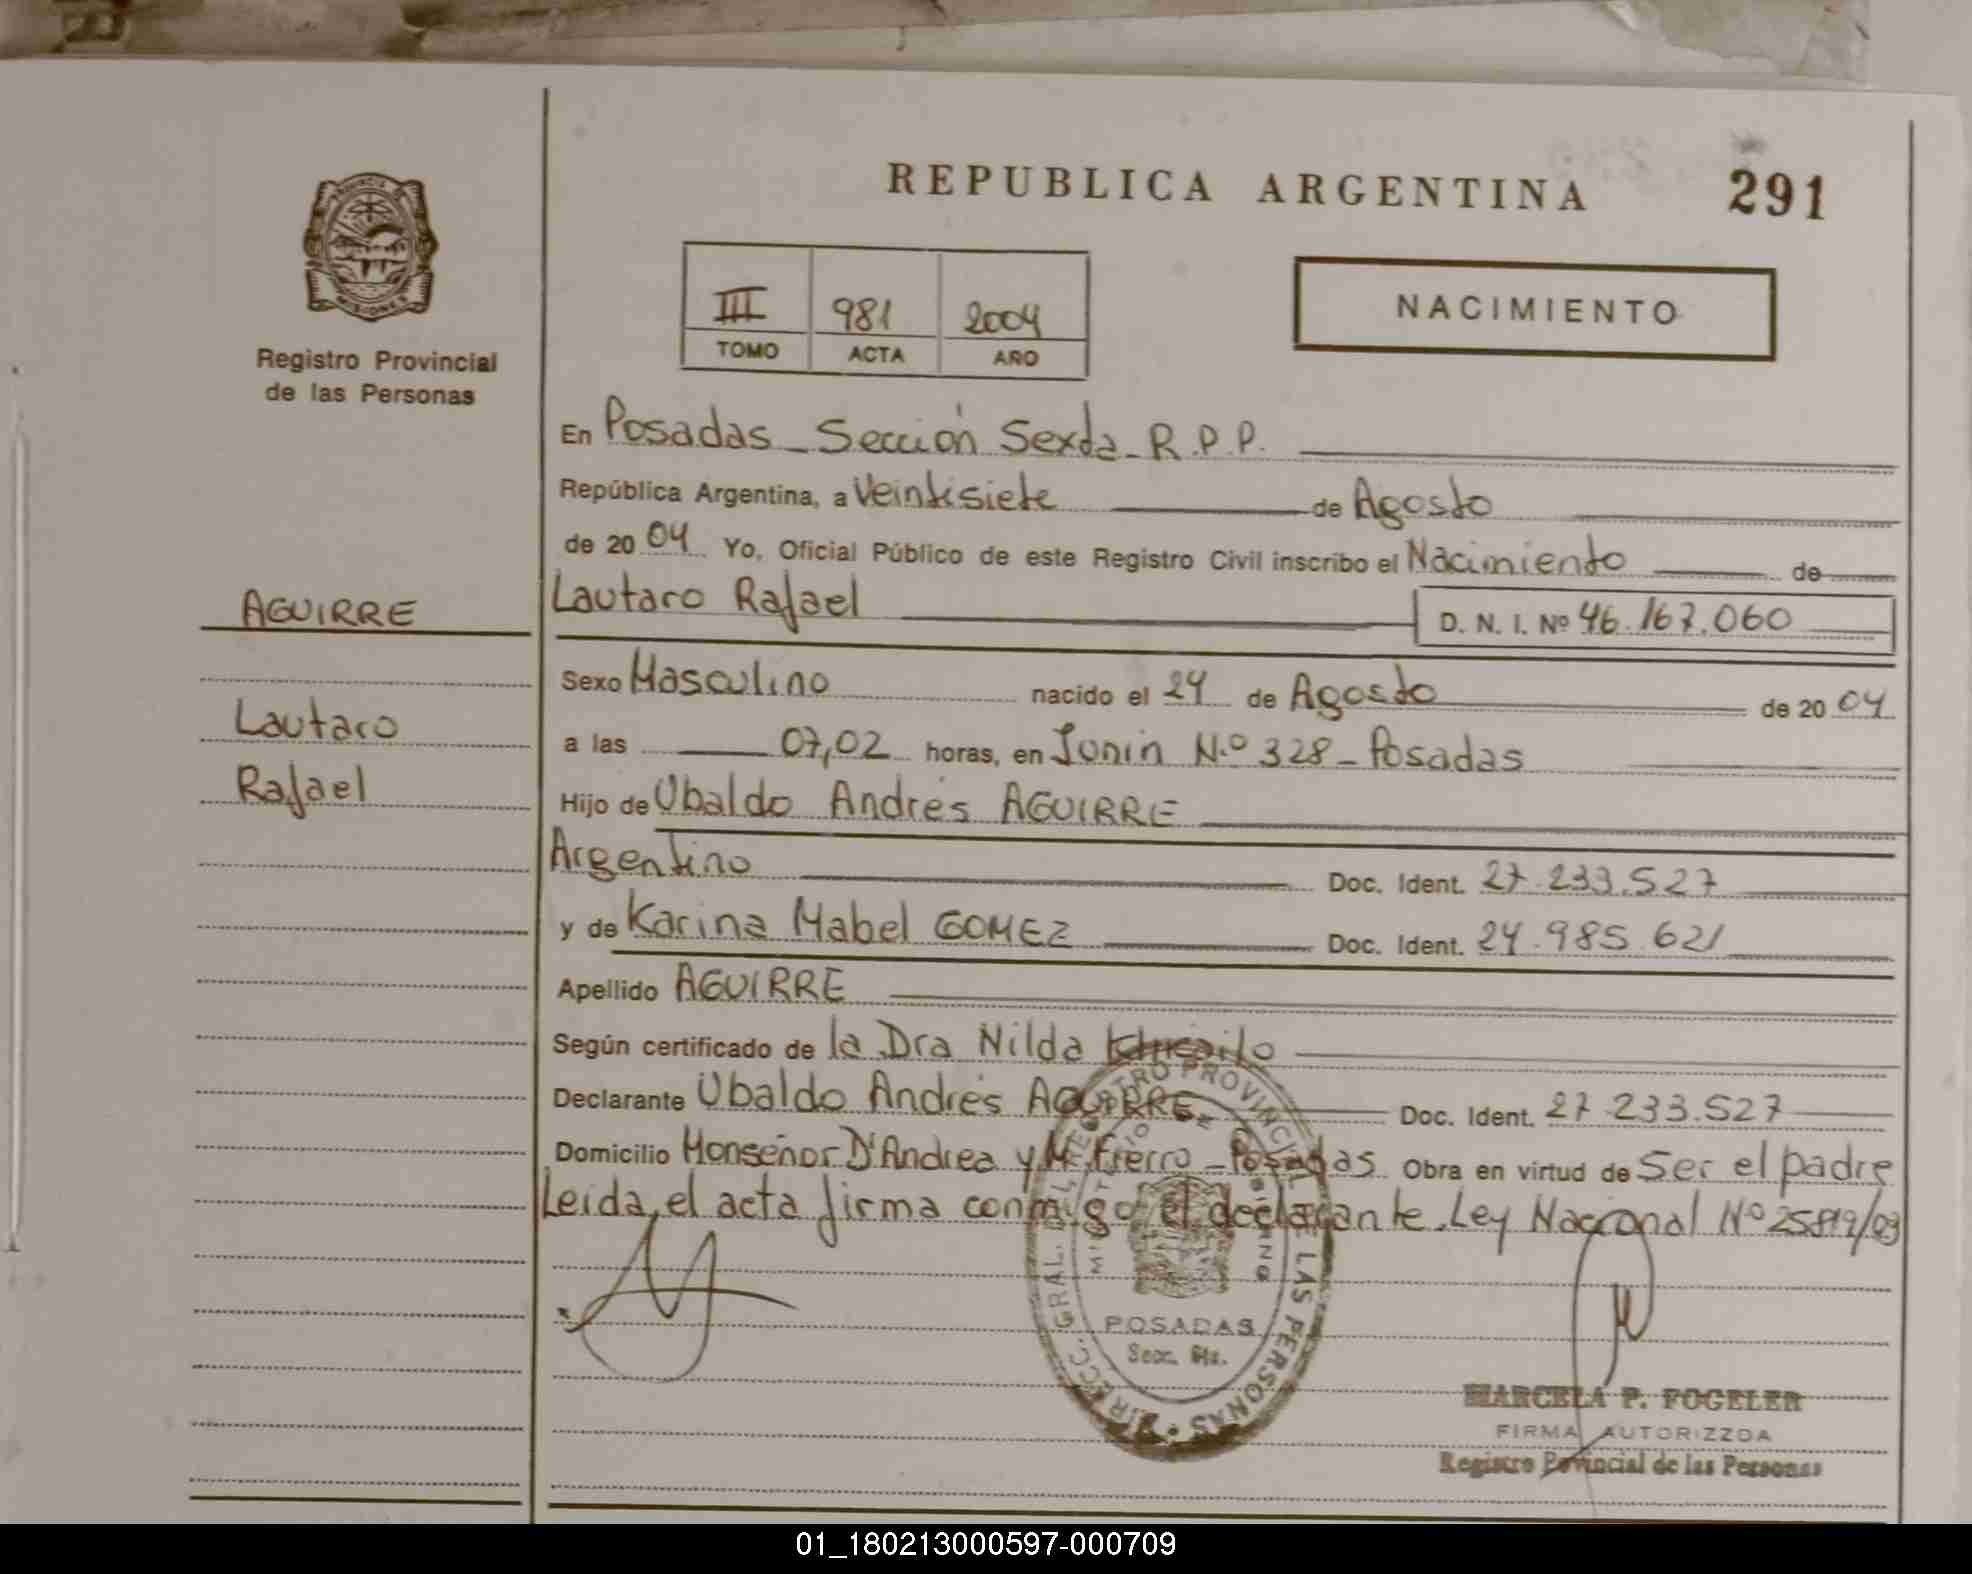 REPUBLICA ARGENTINA 291
PROVINCIA DE MISIONES
Registro Provincial
de las Personas
III 981 2004
TOMO ACTA AÑO
NACIMIENTO
En Posadas - Sección Sexta - R.P.P.
República Argentina, a Veintisiete de Agosto
de 2004 Yo, Oficial Público de este Registro Civil inscribo el Nacimiento de
AGUIRRE
Lautaro
Rafael
Lautaro Rafael D. N. I. Nº 46.167.060
Sexo Masculino nacido el 24 de Agosto de 2004
a las 07,02 horas, en Junin N.º 328 - Posadas
Hijo de Ubaldo Andrés AGUIRRE
Argentino Doc. Ident. 27.233.527
y de Karina Mabel GOMEZ Doc. Ident. 24.985.621
Apellido AGUIRRE
Según certificado de la Dra Nilda
Declarante Ubaldo Andrés AGUIRRE Doc. Ident. 27.233.527
Domicilio Monseñor D'Andrea y M. Fierro - Posadas Obra en virtud de Ser el padre
Leida, el acta firma conmigo el declarante. Ley Nacional Nº 25819/03
DIRECC. GRAL. DEL REGISTRO PROVINCIAL DE LAS PERSONAS
POSADAS
Secc. 6ta.
MARCELA P. FOGELER
FIRMA AUTORIZZDA
Registro Povincial de las Personas
01_180213000597-000709